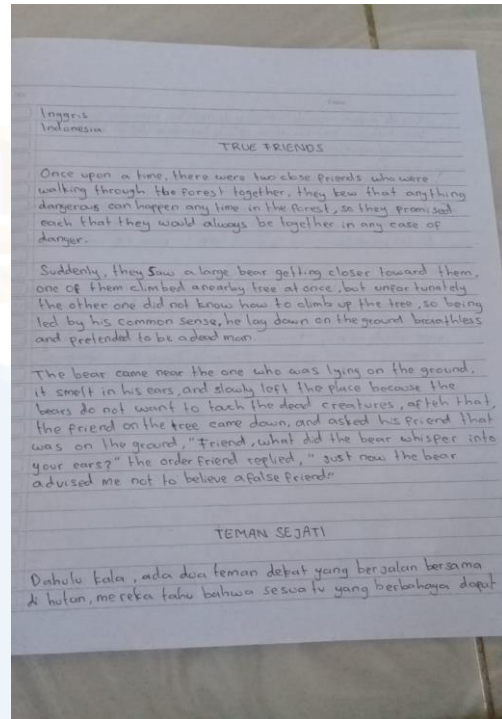 Inggris
Indonesia
TRUE FRIENDS
Once upon a time, there were two close friends who were
walking through the forest together, they kew that anything
dangerous can happen any time in the forest, so they promised
each that they would always be together in any case of
danger.
Suddenly, they saw a large bear getting closer toward them,
one of them climbed a nearby tree at once, but unfortunately
the other one did not know how to climb up the tree, so being
led by his common sense, he lay down on the ground breathless
and pretended to be a dead man.
The bear came near the one who was lying on the ground,
it smelt in his ears, and slowly left the place because the
bears do not want to tach the dead creatures, afteh that,
the friend on the tree came down, and asked his friend that
was on the ground, "Friend, what did the bear whisper into
your ears?" the order friend replied, "Just now the bear
advised me not to believe a false friend"
TEMAN SEJATI
Dahulu kala, ada dua teman dekat yang berjalan bersama
di hutan, mereka tahu bahwa sesuatu yang berbahaya dapat